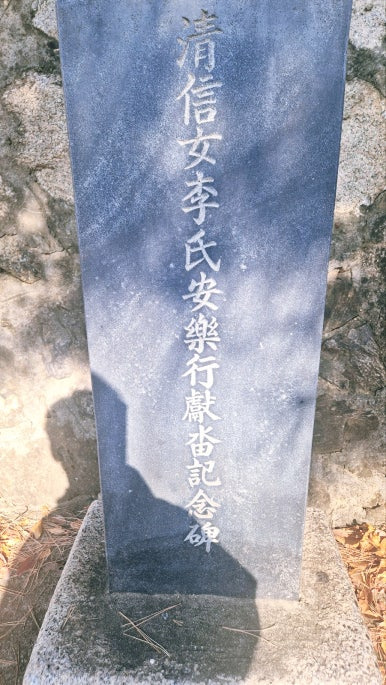 清信女李氏安樂行獻畓記念碑